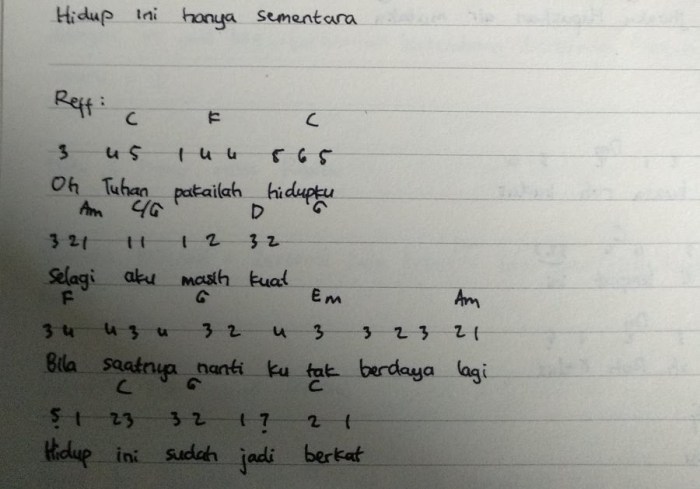 Hidup ini hanya sementara
Reff:
C F C
3 4 5 1 4 4 5 6 5
Oh Tuhan pakailah hidupku
Am C/G D G
3 2 1 1 1 1 2 3 2
Selagi aku masih kuat
F G Em Am
3 4 4 3 4 3 2 4 3 3 2 3 2 1
Bila saatnya nanti ku tak berdaya lagi
C G C
5̣ 1 2 3 3 2 1 7̣ 2 1
Hidup ini sudah jadi berkat